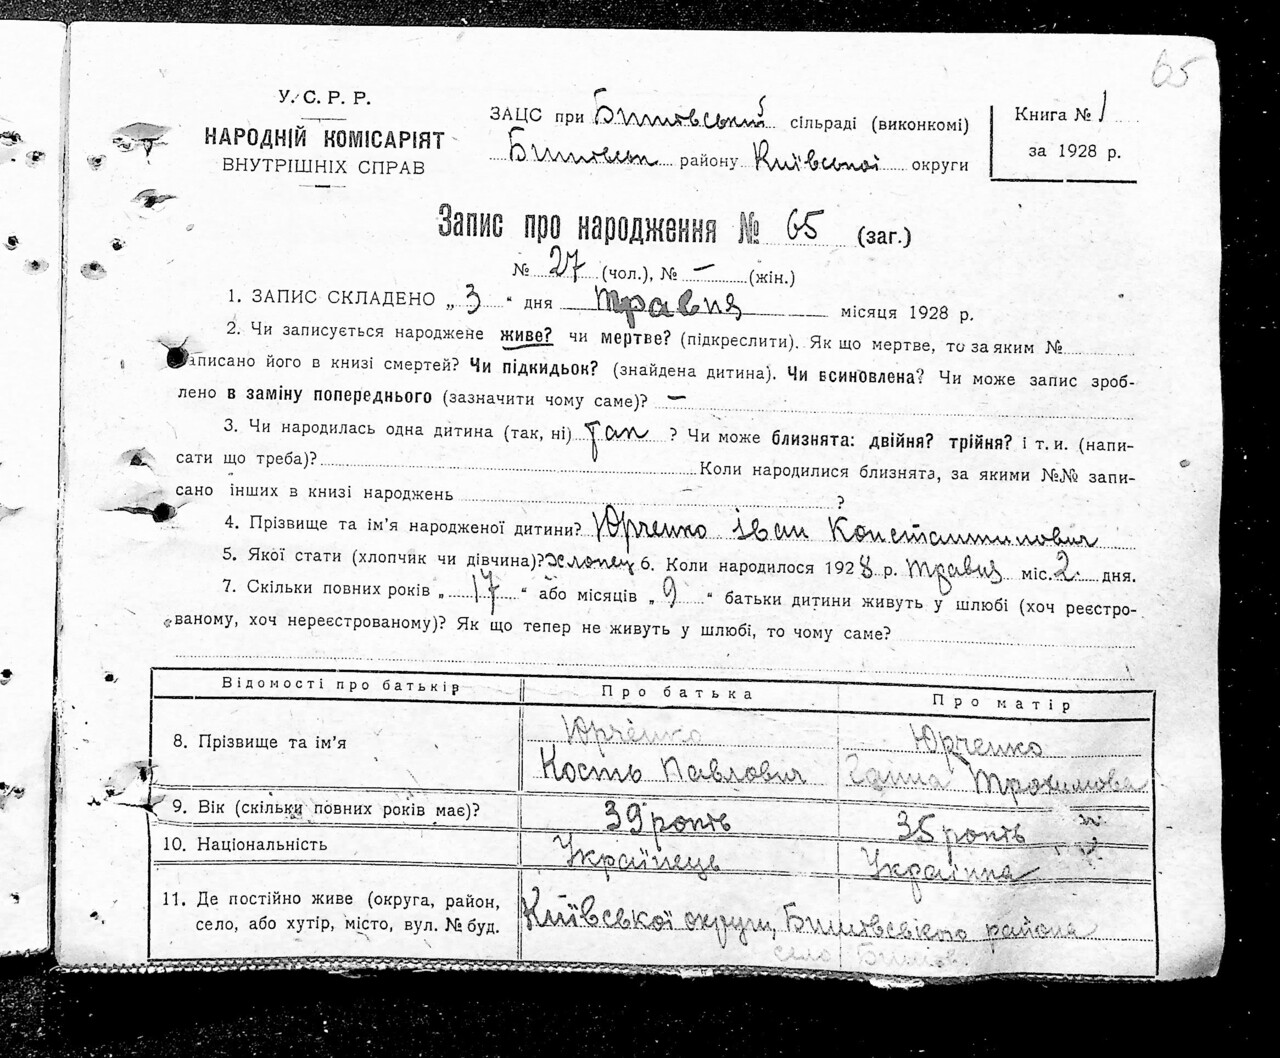 65
У.С.Р.Р.
НАРОДНІЙ КОМІСАРІЯТ
ВНУТРІШНІХ СПРАВ
ЗАЦС при Бишовській сільраді (виконкомі)
Бишовськ району Київської округи
Книга № 1
за 1928 р.
Запис про народження № 65 (заг.)
№ 27 (чол.), № – (жін.)
1. ЗАПИС СКЛАДЕНО „ 3 “ дня травня місяця 1928 р.
2. Чи записується народжене живе? чи мертве? (підкреслити). Як що мертве, то за яким №
записано його в книзі смертей? Чи підкидьок? (знайдена дитина). Чи всиновлена? Чи може запис зроб-
лено в заміну попереднього (зазначити чому саме)? –
3. Чи народилась одна дитина (так, ні) так ? Чи може близнята: двійня? трійня? і т. и. (напи-
сати що треба)? Коли народилися близнята, за якими №№ запи-
сано інших в книзі народжень ?
4. Прізвище та ім’я народженої дитини? Юрченко Іван Константинович
5. Якої стати (хлопчик чи дівчина)? хлопец 6. Коли народилося 1928 р. травня міс. 2 дня.
7. Скільки повних років „ 17 “ або місяців „ 9 “ батьки дитини живуть у шлюбі (хоч реєстро-
ваному, хоч нереєстрованому)? Як що тепер не живуть у шлюбі, то чому саме?
Відомості про батьків Про батька Про матір
8. Прізвище та ім’я Юрченко Юрченко
Кость Павлович Ганна Трохимова
9. Вік (скільки повних років має)? 39 років 35 років
10. Національність Українець Украінка
11. Де постійно живе (округа, район,
село, або хутір, місто, вул. № буд.
Київської округи, Бишовського района
село Бишов.